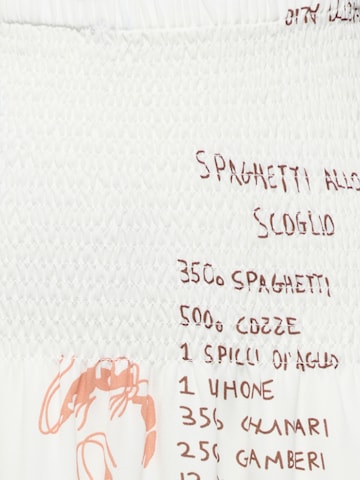 SPAGHETTI ALLO
SCOGLIO
350g SPAGHETTI
500g COZZE
1 SPICCI DI AGLIO
1 LIMONE
356 CALAMARI
256 GAMBERI